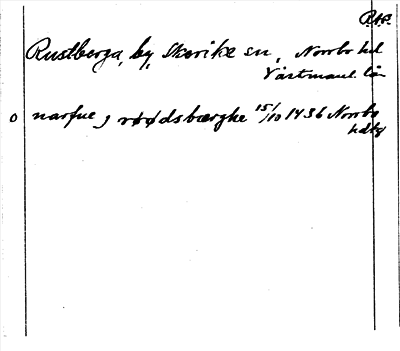 R.A.P.
Rustberga, by, Skerike sn, Norrbo hd
Västmanl. län
o narfue j røødsbærghe 15/10 1436 Norrbo
hdtg